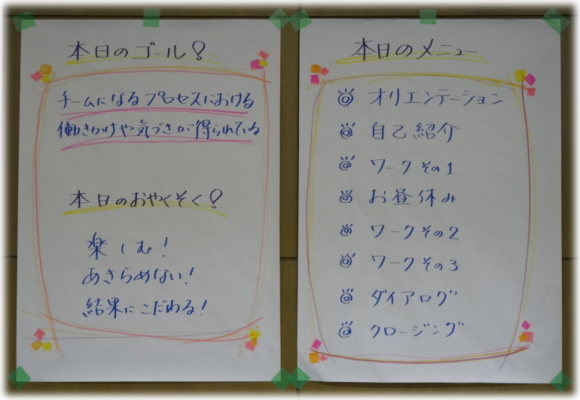 本日のゴール!
チームになるプロセスにおける
働きかけや気づきが得られている
本日のおやくそく!
楽しむ!
あきらめない!
結果にこだわる!
本日のメニュー
オリエンテーション
自己紹介
ワークその1
お昼休み
ワークその2
ワークその3
ダイアログ
クロージング